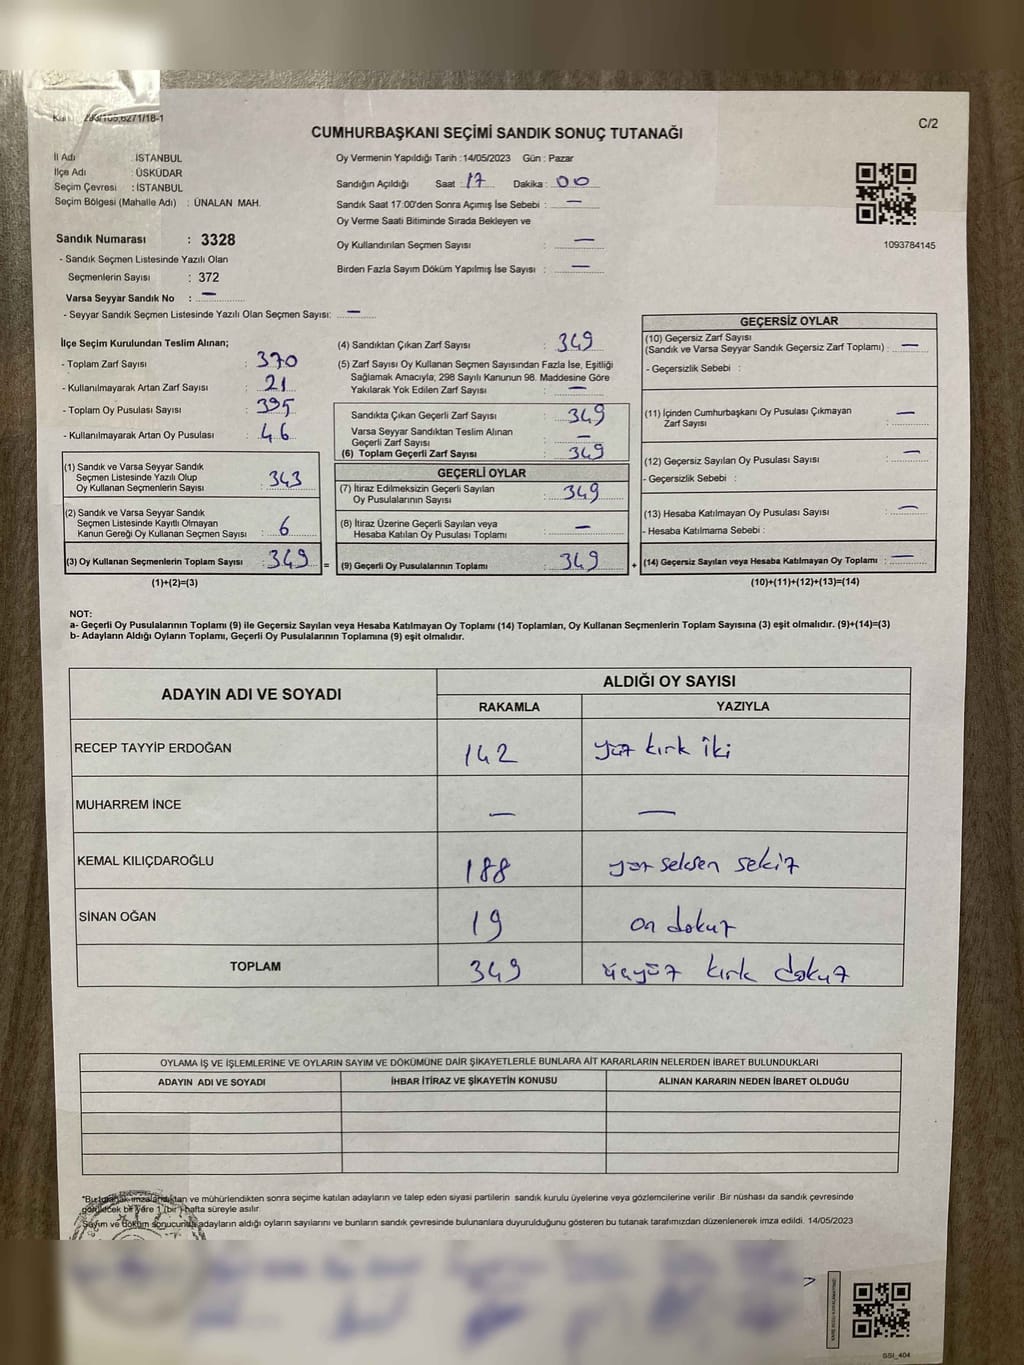 CUMHURBAŞKANI SEÇİMİ SANDIK SONUÇ TUTANAĞI
C/2
İl Adı : İSTANBUL
İlçe Adı : ÜSKÜDAR
Seçim Çevresi : İSTANBUL
Seçim Bölgesi (Mahalle Adı) : ÜNALAN MAH.
Oy Vermenin Yapıldığı Tarih : 14/05/2023 Gün : Pazar
Sandığın Açıldığı Saat : 17 Dakika : 00
Sandık Saat 17:00'den Sonra Açımış İse Sebebi : —
Oy Verme Saati Bitiminde Sırada Bekleyen ve
Oy Kullandırılan Seçmen Sayısı : —
Birden Fazla Sayım Döküm Yapılmış İse Sayısı : —
1093784145
Sandık Numarası : 3328
- Sandık Seçmen Listesinde Yazılı Olan
Seçmenlerin Sayısı : 372
Varsa Seyyar Sandık No : —
- Seyyar Sandık Seçmen Listesinde Yazılı Olan Seçmen Sayısı: —
İlçe Seçim Kurulundan Teslim Alınan;
- Toplam Zarf Sayısı : 370
- Kullanılmayarak Artan Zarf Sayısı : 21
- Toplam Oy Pusulası Sayısı : 395
- Kullanılmayarak Artan Oy Pusulası : 46
(1) Sandık ve Varsa Seyyar Sandık
Seçmen Listesinde Yazılı Olup
Oy Kullanan Seçmenlerin Sayısı : 343
(2) Sandık ve Varsa Seyyar Sandık
Seçmen Listesinde Kayıtlı Olmayan
Kanun Gereği Oy Kullanan Seçmen Sayısı : 6
(3) Oy Kullanan Seçmenlerin Toplam Sayısı : 349 =
(1)+(2)=(3)
(4) Sandıktan Çıkan Zarf Sayısı : 349
(5) Zarf Sayısı Oy Kullanan Seçmen Sayısından Fazla İse, Eşitliği
Sağlamak Amacıyla, 298 Sayılı Kanunun 98. Maddesine Göre
Yakılarak Yok Edilen Zarf Sayısı : —
Sandıkta Çıkan Geçerli Zarf Sayısı : 349
Varsa Seyyar Sandıktan Teslim Alınan
Geçerli Zarf Sayısı : —
(6) Toplam Geçerli Zarf Sayısı : 349
GEÇERLİ OYLAR
(7) İtiraz Edilmeksizin Geçerli Sayılan
Oy Pusulalarının Sayısı : 349
(8) İtiraz Üzerine Geçerli Sayılan veya
Hesaba Katılan Oy Pusulası Toplamı : —
(9) Geçerli Oy Pusulalarının Toplamı : 349 +
GEÇERSİZ OYLAR
(10) Geçersiz Zarf Sayısı
(Sandık ve Varsa Seyyar Sandık Geçersiz Zarf Toplamı) : —
- Geçersizlik Sebebi :
(11) İçinden Cumhurbaşkanı Oy Pusulası Çıkmayan
Zarf Sayısı : —
(12) Geçersiz Sayılan Oy Pusulası Sayısı : —
- Geçersizlik Sebebi :
(13) Hesaba Katılmayan Oy Pusulası Sayısı : —
- Hesaba Katılmama Sebebi :
(14) Geçersiz Sayılan veya Hesaba Katılmayan Oy Toplamı : —
(10)+(11)+(12)+(13)=(14)
NOT:
a- Geçerli Oy Pusulalarının Toplamı (9) ile Geçersiz Sayılan veya Hesaba Katılmayan Oy Toplamı (14) Toplamları, Oy Kullanan Seçmenlerin Toplam Sayısına (3) eşit olmalıdır. (9)+(14)=(3)
b- Adayların Aldığı Oyların Toplamı, Geçerli Oy Pusulalarının Toplamına (9) eşit olmalıdır.
ADAYIN ADI VE SOYADI
ALDIĞI OY SAYISI
RAKAMLA YAZIYLA
RECEP TAYYİP ERDOĞAN 142 yüz kırk iki
MUHARREM İNCE — —
KEMAL KILIÇDAROĞLU 188 yüz seksen sekiz
SİNAN OĞAN 19 on dokuz
TOPLAM 349 üçyüz kırk dokuz
OYLAMA İŞ VE İŞLEMLERİNE VE OYLARIN SAYIM VE DÖKÜMÜNE DAİR ŞİKAYETLERLE BUNLARA AİT KARARLARIN NELERDEN İBARET BULUNDUKLARI
ADAYIN ADI VE SOYADI İHBAR İTİRAZ VE ŞİKAYETİN KONUSU ALINAN KARARIN NEDEN İBARET OLDUĞU
*Bu tutanak imzalandıktan ve mühürlendikten sonra seçime katılan adayların ve talep eden siyasi partilerin sandık kurulu üyelerine veya gözlemcilerine verilir. Bir nüshası da sandık çevresinde
görülecek bir yere 1 (bir) hafta süreyle asılır.
Sayım ve döküm sonucunda adayların aldığı oyların sayılarını ve bunların sandık çevresinde bulunanlara duyurulduğunu gösteren bu tutanak tarafımızdan düzenlenerek imza edildi. 14/05/2023
SSI_404